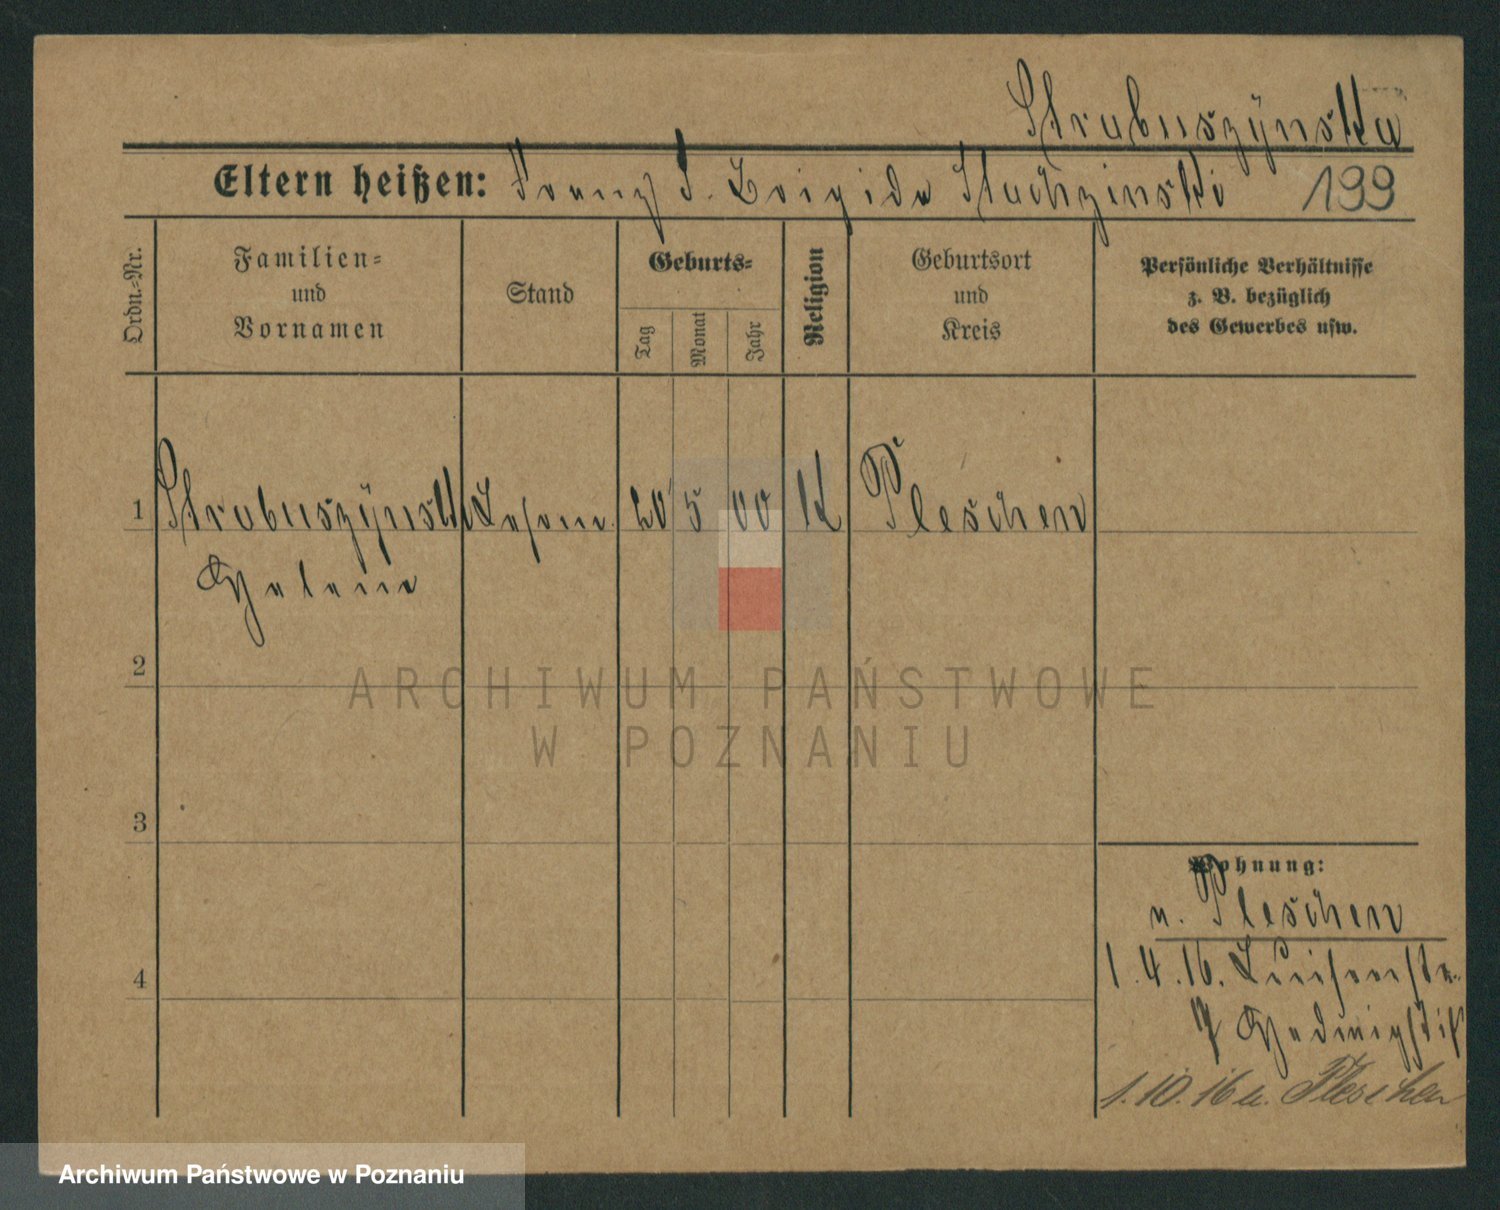 Strabuszÿnska
Eltern heißen: Franz u. Brigida Stachzinski 199
Ordn.-Nr.
Familien-
und
Vornamen
Stand
Geburts-
Tag
Monat
Jahr
Religion
Geburtsort
und
Kreis
Persönliche Verhältnisse
z. B. bezüglich
des Gewerbes usw.
1 Strabuszÿnsk 20 5 00 K Pleschen
Helene
2
3
4
Wohnung:
n. Pleschen
1.4.16. Luisenstr.
7 Hedwigstift
1.10.16 n. Pleschen
ARCHIWUM PAŃSTWOWE
W POZNANIU
Archiwum Państwowe w Poznaniu